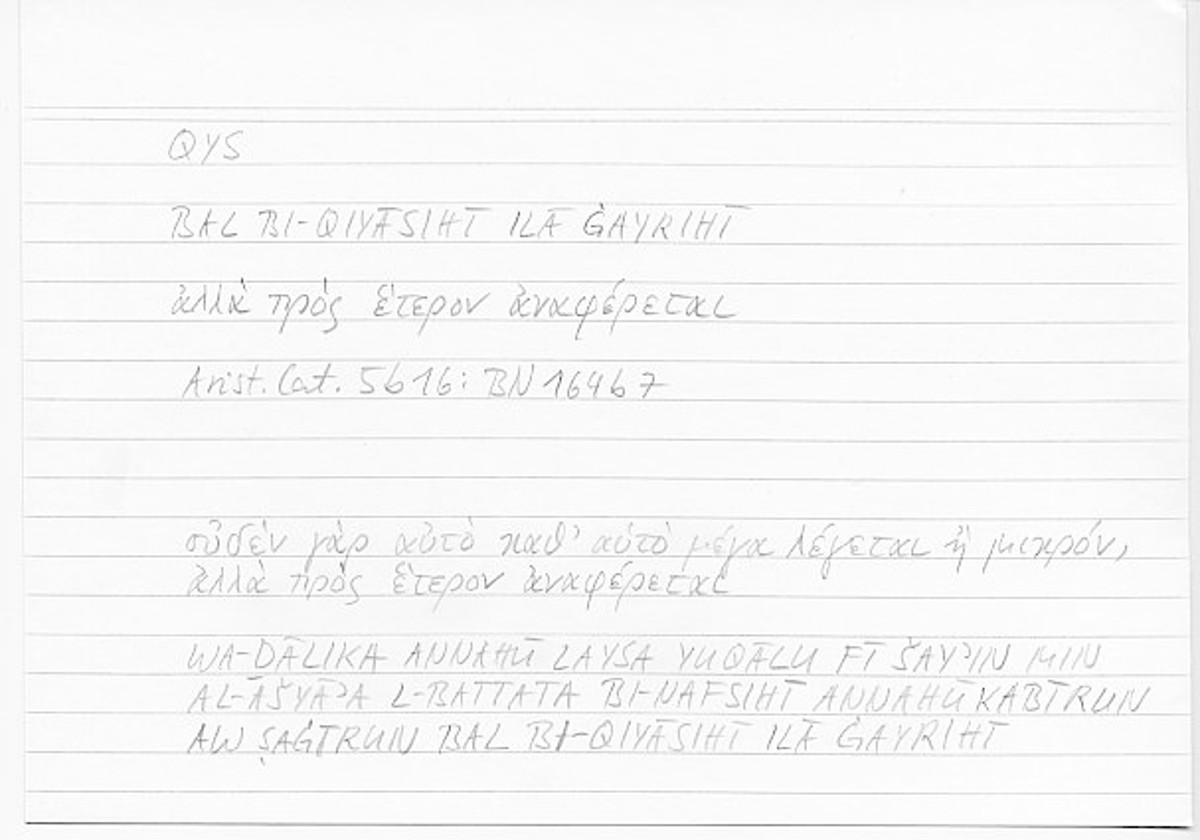 QYS
BAL BI-QIYĀSIHĪ ILĀ ĠAYRIHĪ
ἀλλὰ πρός ἕτερον ἀναφέρεται
Arist. Cat. 5b16: BN 164b7
οὐδὲν γὰρ αὐτὸ καθ' αὑτὸ μέγα λέγεται ἢ μικρόν,
ἀλλὰ πρὸς ἕτερον ἀναφέρεται
WA-ḎĀLIKA ANNAHŪ LAYSA YUQĀLU FĪ ŠAYʾIN MIN
AL-ĀŠYĀʾA L-BATTATA BI-NAFSIHĪ ANNAHŪ KABĪRUN
AW ṢAĠĪRUN BAL BI-QIYĀSIHĪ ILĀ ĠAYRIHĪ